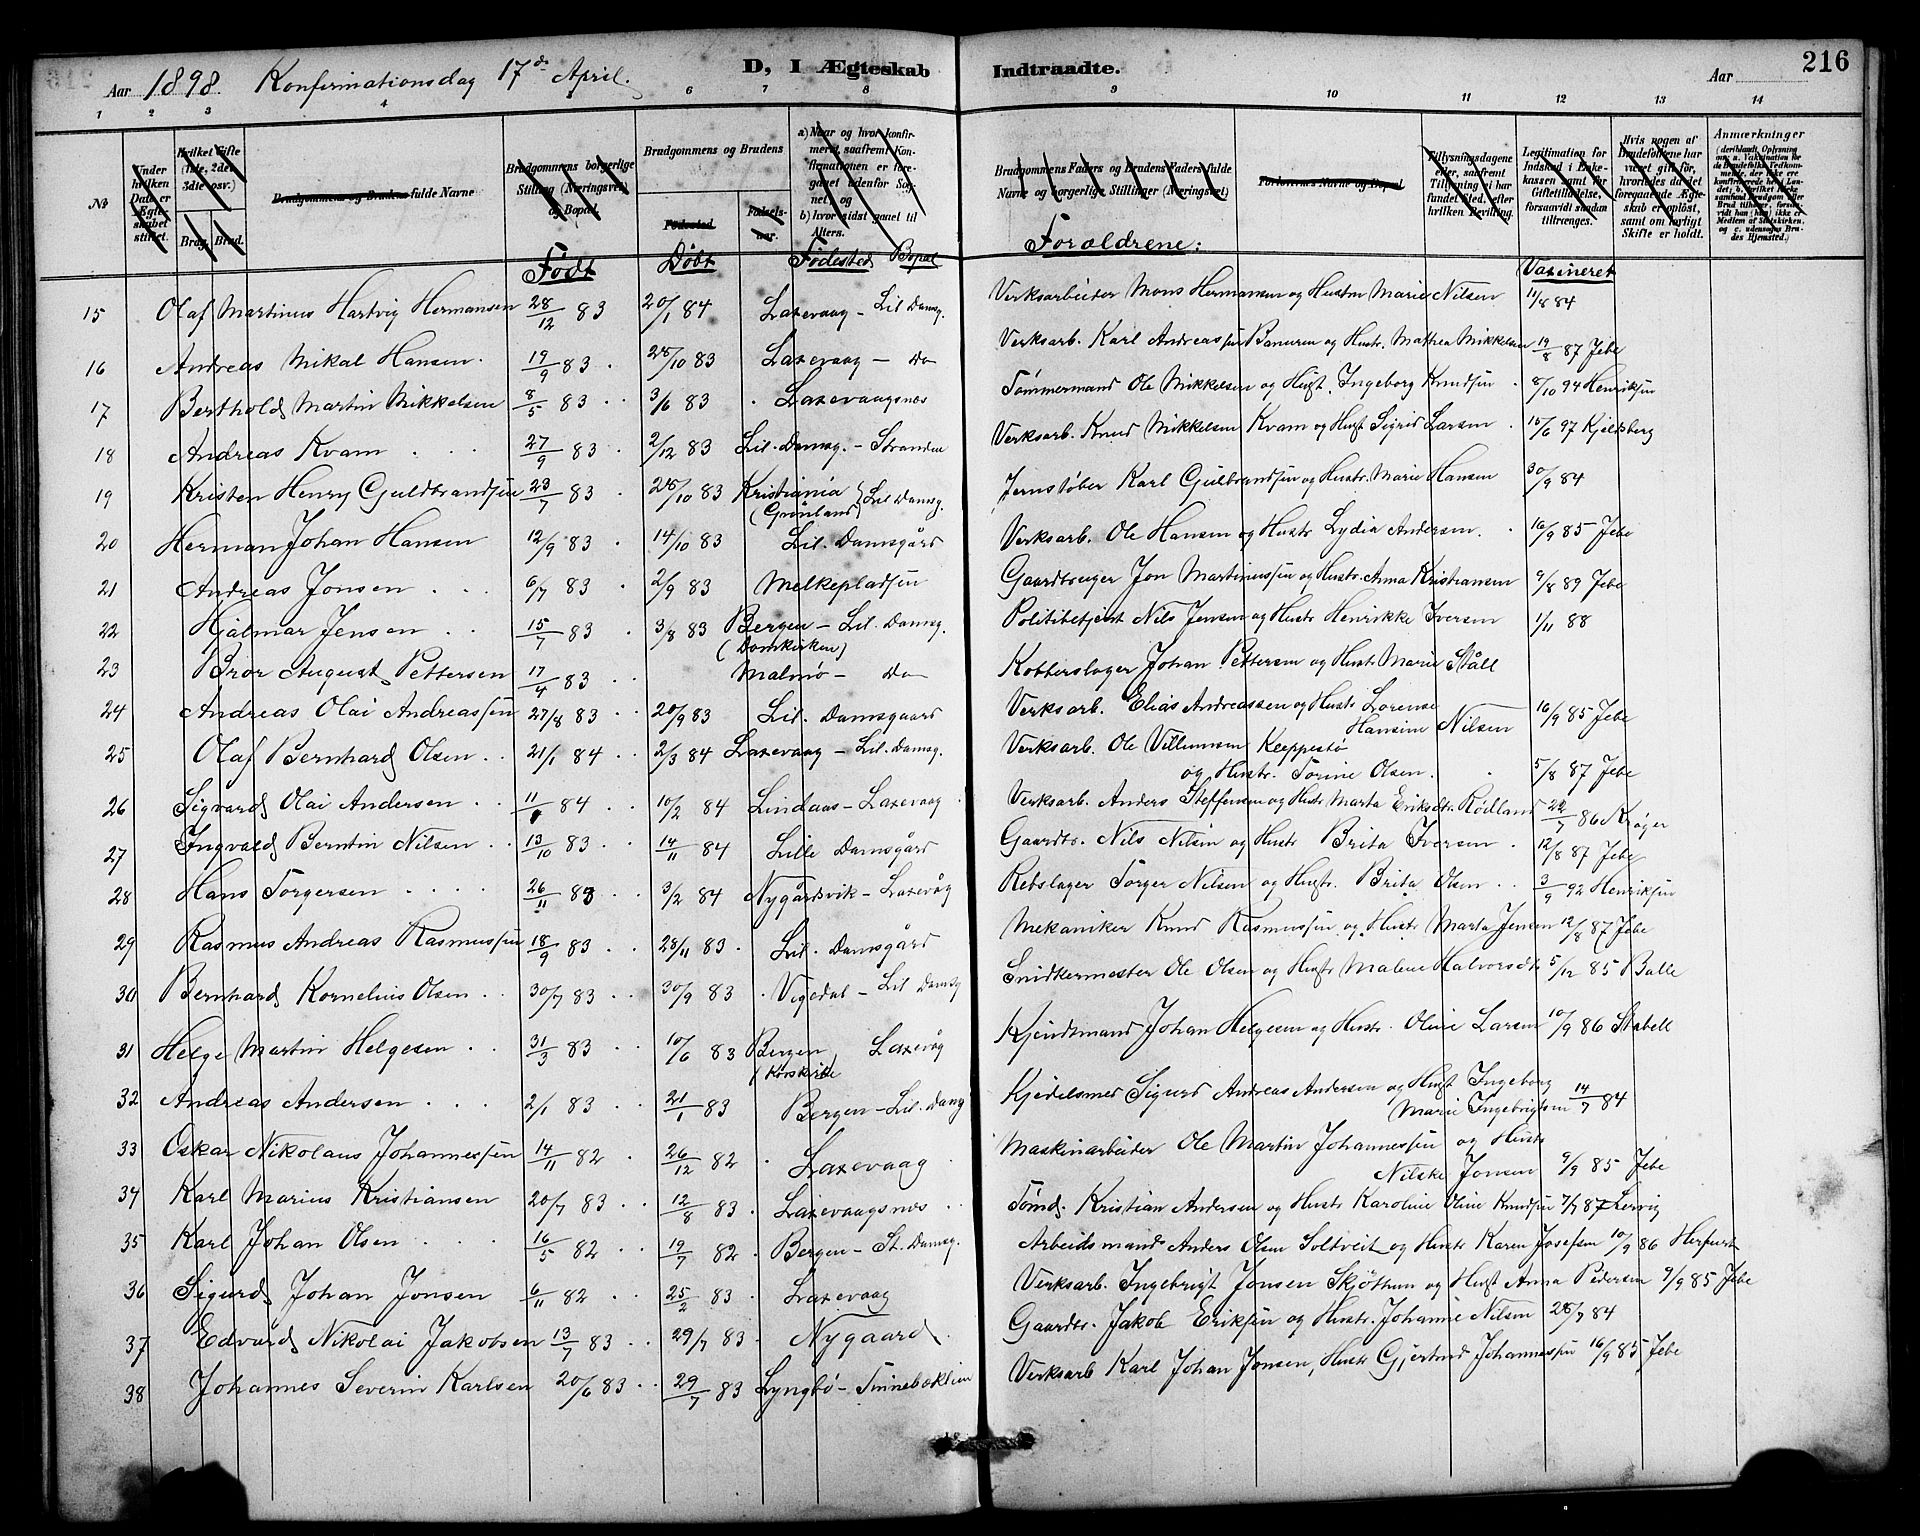 Aar 1898. Konfirmationsdag 17de April. D, I Ægteskab Indtraadte. Aar 216
1 2 3 4 5 6 7 8 9 10 11 12 13 14
No Under hvilken Dato er Ægteskabet stiftet. Hvilket Gifte (1ste, 2det 3die osv.) Brg. Brud. Brudgommens og Brudens fulde Navne Brudgommens borgerlige Stilling (Næringsvei) og Bopæl. Brudgommens og Brudens Fødested Fødselsaar. a) Naar og hvor konfirmeret, saafremt Konfirmationen er foregaaet udenfor Sognet, og b) hvor sidst ganet til Alters. Brudgommens Faders og Brudens Faders fulde Navne og borgerlige Stillinger (Næringsvei) Forlovernes Navne og Bopæl Tillysningsdagene eller, saafremt Tillysning ei har fundet Sted, efter hvilken Bevilling. Legitimation for Indskud i Enkekassen samt for Giftetilladelse, forsaavidt saadan tiltrænges. Hvis nogen af Brudefolkene har været gift før, hvorledes da det foregaaende Ægteskab er opløst, samt om lovligt Skifte er holdt. Anmærkninger
Født Døbt Fødested Bopæl Forældrene: Vaxineret
15 Olaf Martinus Hartvig Hermansen 28/12 83 20/1 84 Laxevaag - Lil Damsg. Verksarbeider Mons Hermansen og Hustru Marie Nilsen 11/8 84
16 Andreas Mikal Hansen. 19/9 83 28/10 83 Laxevaag - Do Verksarb. Karl Andreassen og Hustr. Mathea Mikkelsen 19/8 87 Jebe
17 Berthold Martin Mikkelsen 8/5 83 3/6 83 Laxevaagsnes Tømmermand Ole Mikkelsen og Hust. Ingeborg Knudsen 8/10 94 Henriksen
18 Andreas Kvam 27/9 83 2/12 83 Lil. Damsg. - Stranden Verksarb. Knud Mikkelsen Kvam og Hust Sigrid Larsen 15/6 97 Kjeldsberg
19 Kristen Henry Guldbrandsen 23/7 83 28/10 83 Kristiania (Grønland) Lil Damsg. Jernstøber Karl Gulbrandsen og Hustr. Marie Hansen 30/9 84
20 Herman Johan Hansen 12/9 83 14/10 83 Lil. Damsgård Verksarb. Ole Hansen og Hustr Lydia Andersen. 16/9 85 Jebe
21 Andreas Jonsen 6/7 83 2/9 83 Melkepladsen Gaardbruger Jon Martinussen og Hustr. Anna Kristiansen 9/8 89 Jebe
22 Hjalmar Jensen 15/7 83 3/8 83 Bergen - Lil. Damsg. (Domkirken) Politibetjent Nils Jensen og Hustr Henrikke Iversen 1/11 88
23 Bror August Pettersen 17/4 83 Malmø - Do Kobberslager Johan Pettersen og Hustr Marie Ståll
24 Andreas Olai Andreassen 27/8 83 20/9 83 Lil. Damsgaard Verksarb. Elias Andreassen og Hustr Lorense Hansine Nilsen 16/9 85 Jebe
25 Olaf Bernhard Olsen 21/1 84 2/3 84 Laxevaag - Lil. Damsg. Verksarb. Ole Villumsen Kleppestø
og Hustr. Torine Olsen. 5/8 87 Jebe
26 Sigvard Olai Andersen 11/ 84 10/2 84 Lindaas - Laxevaag Verksarb. Anders Steffensen og Hustr Marta Eriksdtr Rødland 22/7 86 Krøger
27 Ingvald Berntin Nilsen 13/10 83 14/11 84 Lille Damsgård Gaardbr. Nils Nilsen og Hustr Brita Iversen 12/8 87 Jebe
28 Hans Torgersen 26/11 83 3/2 84 Nygårdsvik - Laxevåg Rebslager Torger Nilsen og Hustr. Brita Olsen 3/9 92 Henriksen
29 Rasmus Andreas Rasmussen 18/9 83 28/11 83 Lil. Damsgård Mekaniker Knud Rasmussen og Hustr Marta Jensen 12/8 87 Jebe
30 Bernhard Kornelius Olsen 30/7 83 30/9 83 Vigedal - Lil Damsg Snidkermester Ole Olsen og Hustr Malene Halvorsdtr 5/12 85 Balle
31 Helge Martin Helgesen 31/3 83 10/6 83 Bergen (Korskirke) Laxevåg Johan Helgesen og Hustr. Oline Larsen 10/9 86 Stabell
32 Andreas Andersen 2/1 83 21/1 83 Bergen - Lil. Damg Kjedelsmed Sigurd Andreas Andersen og Hust Ingeborg
Marie Ingebrigtsen 14/7 84
33 Oskar Nikolaus Johannessen 14/11 82 26/12 82 Laxevaag Maskinarbeider Ole Martin Johannessen og Hustr
Nilske Jonsen 9/9 85 Jebe
34 Karl Marius Kristiansen 20/7 83 12/8 83 Laxevaagsnes Tømd. Kristian Andersen og Hustr Karoline Oline Knudsen 7/7 87 Lervig
35 Karl Johan Olsen 16/5 82 19/7 82 Bergen - St. Damsg. Arbeidsmand Anders Olsen Soltveit og Hustr Karen Josefsen 10/9 86 Herfurt
36 Sigurd Johan Jonsen 6/11 82 25/2 83 Laxevaag Verksarb. Ingebrigt Jonsen Skjøthun og Hust Anna Pedersen 9/9 85 Jebe
37 Edvard Nikolai Jakobsen 13/7 83 29/7 83 Nygaard Gaardbr. Jakob Eriksen og Hustr. Johanne Nilsen 28/7 84
38 Johannes Severin Karlsen 20/6 83 29/7 83 Lyngbø - Tinnebækken Verksarb Karl Johan Jonsen, Hustr Gjertrud Johannessen 16/9 85 Jebe